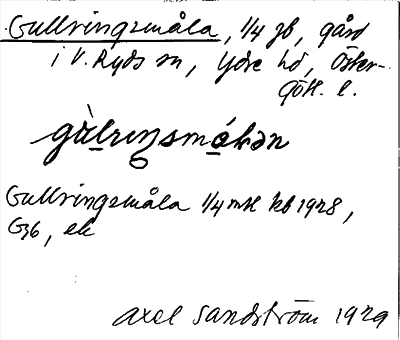 Gullringsmåla, 1/4 jb, gård
i V. Ryds sn, Ydre hd, Öster-
göt. l.
gùlrıŋsmǫ́lan
Gullringsmåla 1/4 mtl kb 1928,
G36, ek
Axel Sandström 1929